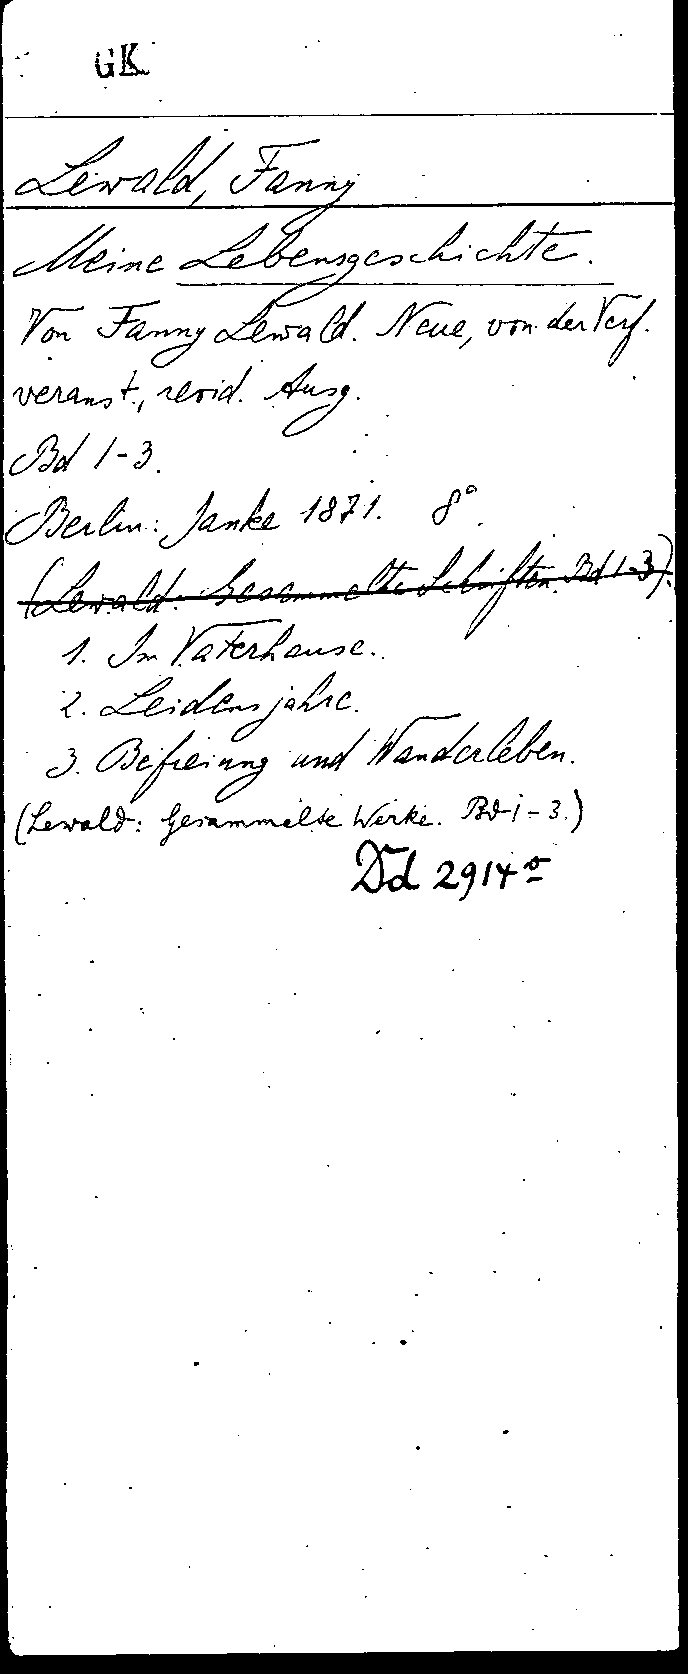 GK
Lewald, Fanny
Meine Lebensgeschichte.
Von Fanny Lewald. Neue, von der Verf.
veranst., revid. Ausg.
Bd 1-3.
Berlin: Janke 1871. 8°.
(Lewald: Gesammelte Schriften. Bd 1-3).
1. Im Vaterhause.
2. Leidensjahre.
3. Befreiung und Wanderleben.
(Lewald: Gesammelte Werke. Bd 1-3.)
Dd 2914